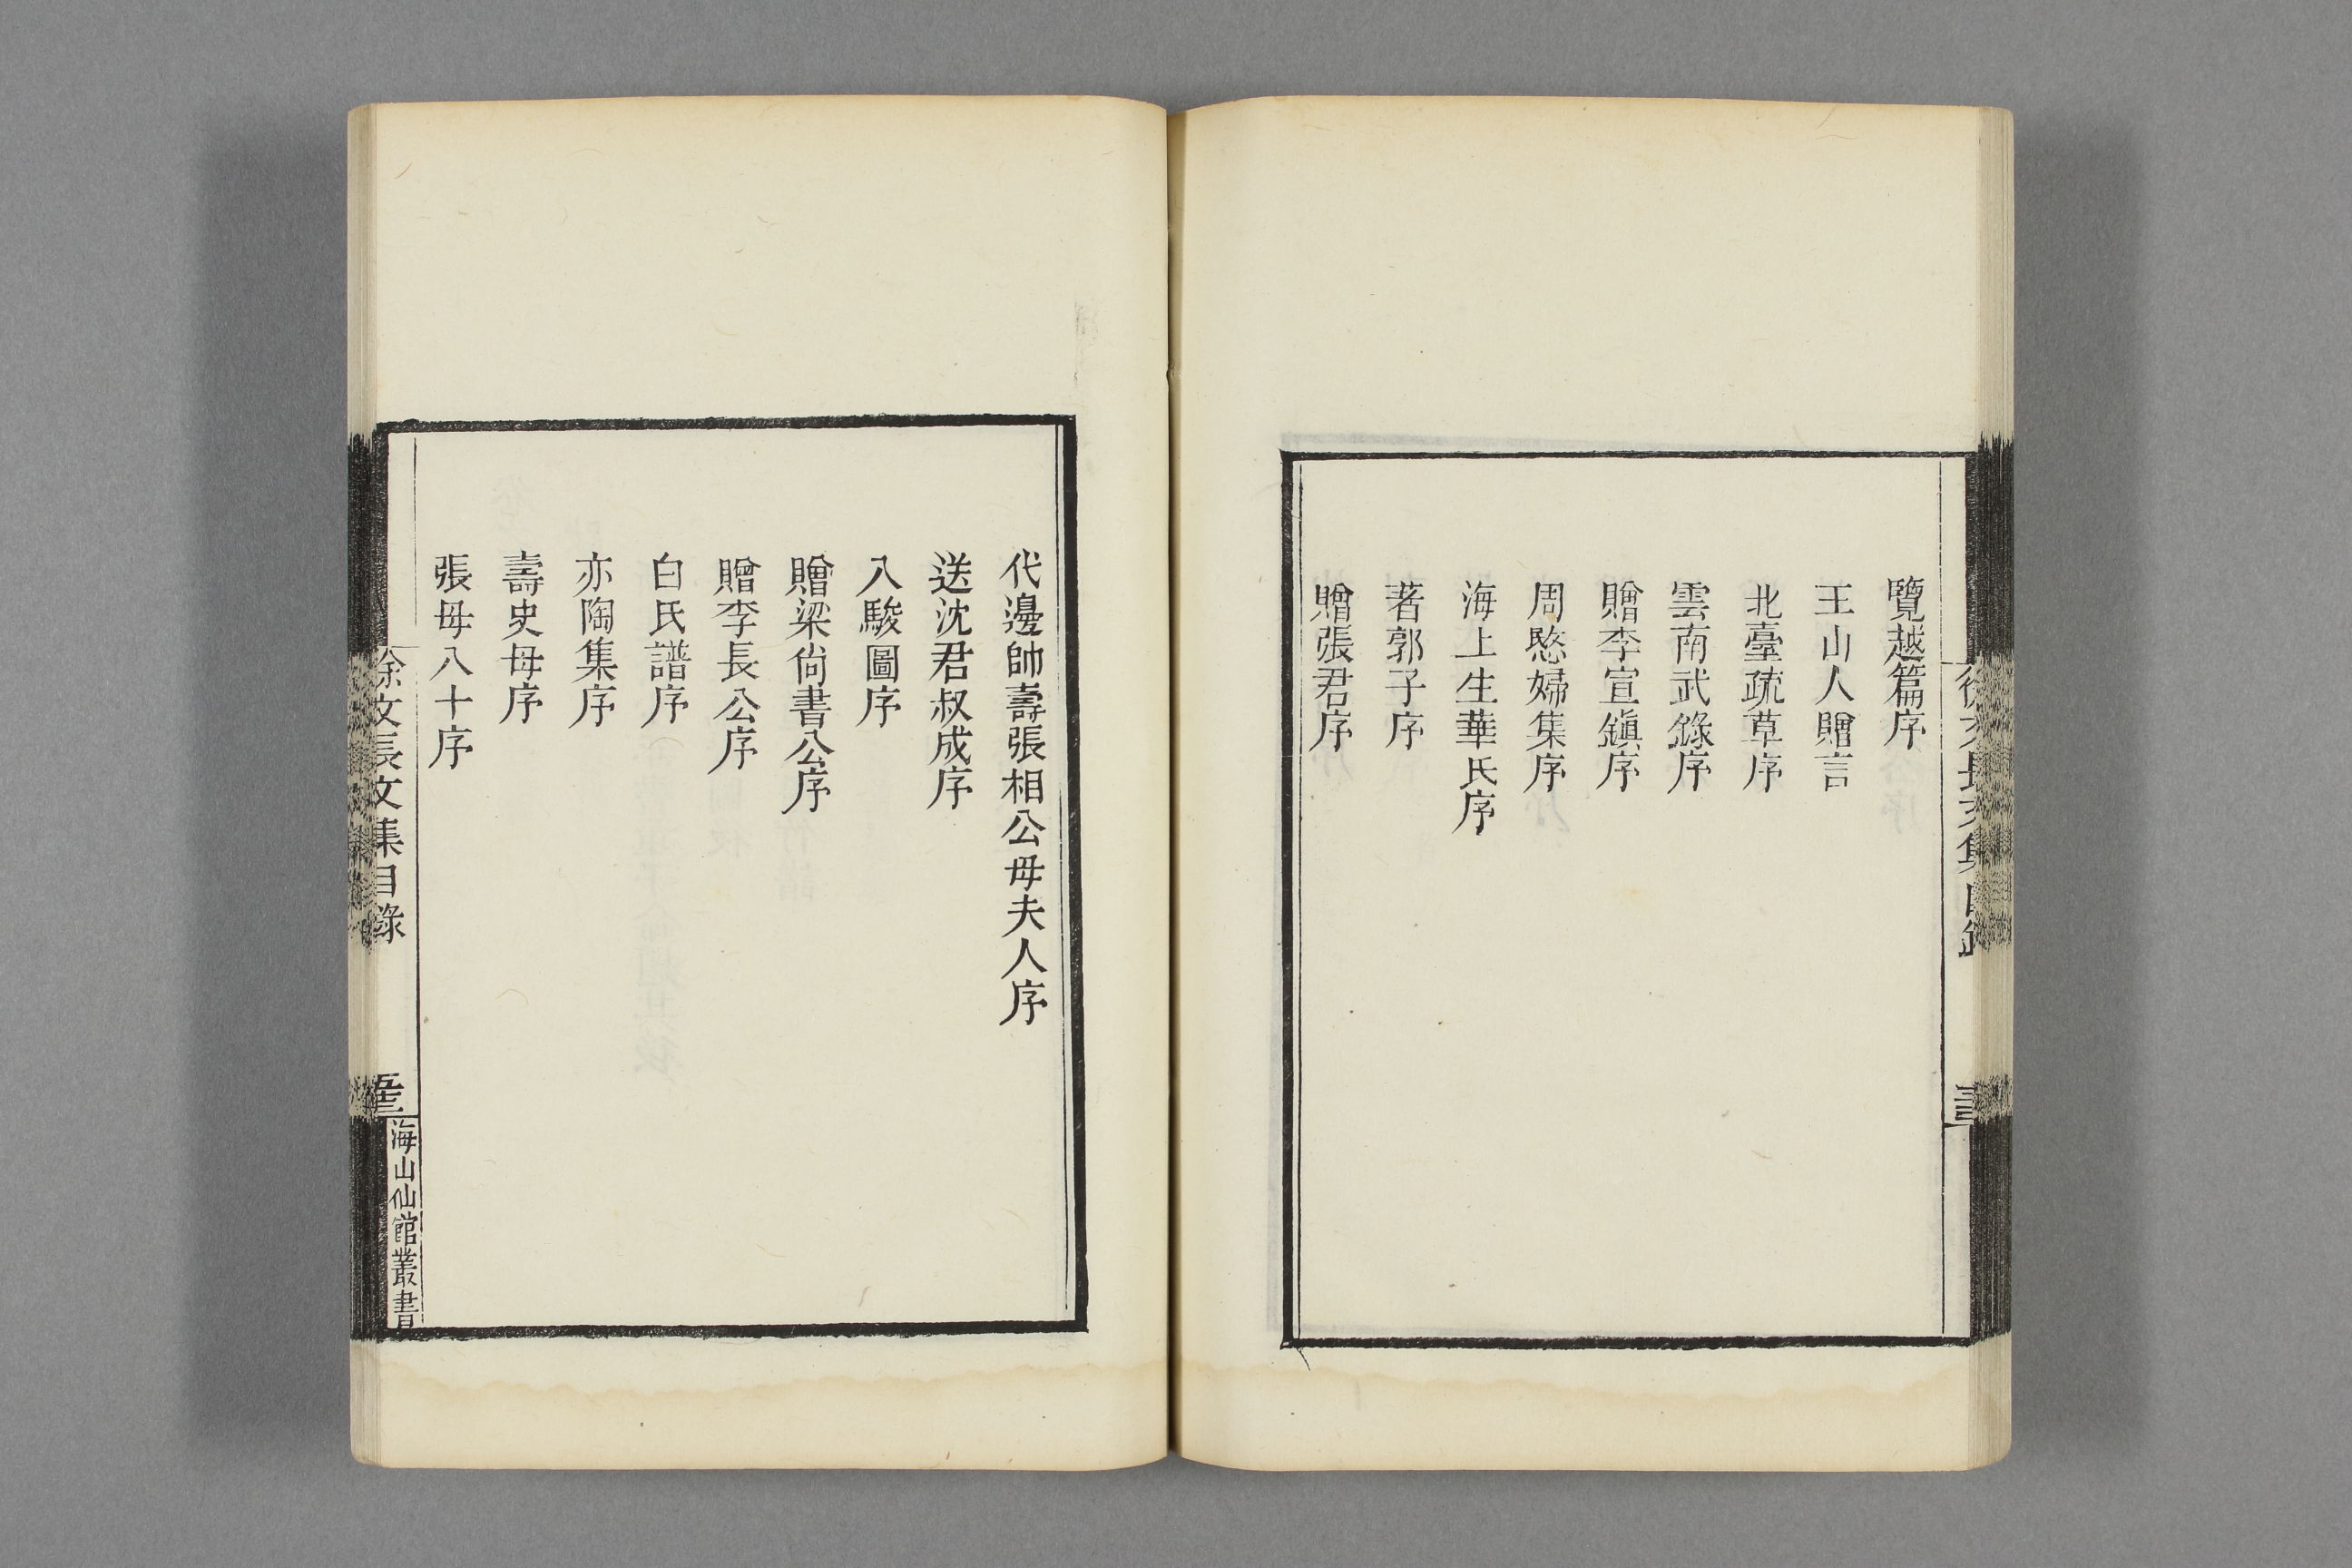 覽越篇序
王山人贈言
北臺疏草序
雲南武錄序
贈李宣鎮序
周愍婦集序
海上生華氏序
著郭子序
贈張君序
代邊帥壽張相公母夫人序
送沈君叔成序
八駿圖序
贈梁尙書公序
贈李長公序
白氏譜序
亦陶集序
壽史母序
張母八十序
徐文長文集目錄
海山仙館叢書